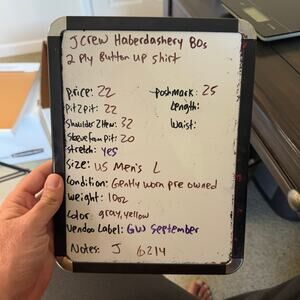 J Crew Haberdashery 80s
2 Ply Button Up Shirt
Price: 22 Poshmark: 25
Pit2Pit: 22 Length:
Shoulder2Hem: 32 Waist:
Sleeve from Pit: 20
Stretch: yes
Size: US Men's L
Condition: Gently worn pre owned
Weight: 10oz
Color: gray, yellow
Vendoo Label: GW September
Notes: J 6214